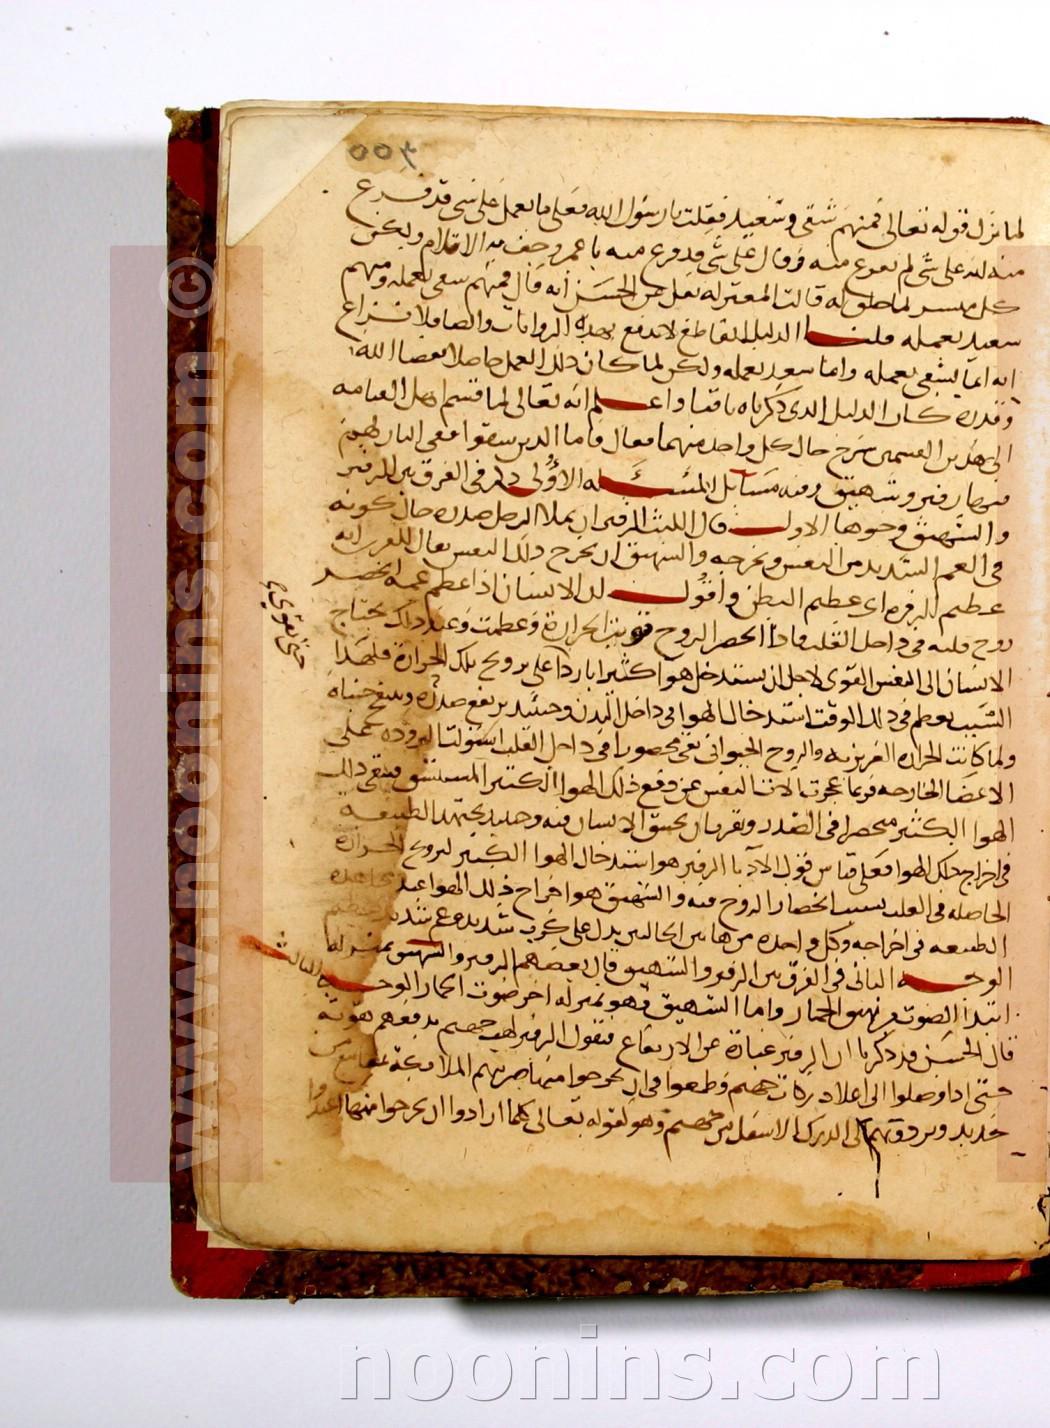 لما نزل قوله تعالى فمنهم شقي وسعيد فقلت يا رسول الله فعلى ما نعمل على شي قد فرغ
منه ام على شي لم يفرغ منه فقال على شي قد فرغ منه يا عمر وجفت به الاقلام ولكن
كل ميسر لما خلق له قالت المعتزله نقل عن الحسن انه قال فمنهم شقي بعمله ومنهم
سعيد بعمله قلنا الدليل القاطع لا يدفع بهذه الروايات وايضا فلا نزاع
انه انما يشقى بعمله وانما سعد بعمله ولكن لما كان ذلك العمل حاصلا بقضا الله
وقدره كان الدليل الذي ذكرناه باقيا واعلم انه تعالى لما قسم اهل القيامه
الى هذين القسمين شرح حال كل واحد منهما فقال فاما الذين شقوا ففي النار لهم
فيها زفير وشهيق وفيه مسايل المسئله الاولى ذكر في الفرق بين الزفير
والشهيق وجوها الاول قال الليث الزفير ان يملا الرجل صدره حال كونه
في الغم الشديد من النفس ويخرجه والشهيق ان يخرج ذلك النفس يقال للفرس انه
عظيم الزفره اي عظيم البطن واقول ان الانسان اذا عظم غمه انحصر
روح قلبه في داخل القلب فاذا انحصر الروح قويت الحرارة وعظمت وعند ذلك يحتاج
الانسان الى النفس القوي لاجل ان يستدخل هوا كثيرا باردا على ترويح تلك الحرارة فلهذا
حتى يقوى
السبب يعظم في ذلك الوقت استدخال الهوا في داخل البدن وحينئذ يرتفع صدره وينتفخ جنباه
ولما كانت الحراره الغريزيه والروح الحيواني محصورا في داخل القلب استولت البروده على
الاعضا الخارجه فربما عجزت الات النفس عن دفع ذلك الهوا الكثير المستنشق فيبقى ذلك
الهوا الكثير منحصرا في الصدر ويقرب ان يختنق الانسان منه وحينئذ تجتهد الطبيعة
في اخراج ذلك الهوا فعلى قياس قول الاطبا الزفير هو استدخال الهوا الكثير لترويح الحرارة
الحاصله في القلب بسبب انحصار الروح فيه والشهيق هو اخراج ذلك الهوا عند مجاهدة
الطبيعه في اخراجه وكل واحده من هاتين الحالتين يدل على كرب شديد وغم شديد
الوجه الثاني في الفرق بين الزفير والشهيق قال بعضهم الزفير والشهيق بمنزله
ابتدا الصوت من نهيق الحمار واما الشهيق فهو بمنزله اخر صوت الحمار الوجه الثالث
قال الحسن قد ذكرنا ان الزفير عبارة عن الارتفاع فنقول الزفير لهب جهنم يرفعهم بقوته
حتى اذا وصلوا الى اعلا دركات جهنم وطمعوا في ان يخرجوا منها ضربتهم الملايكة بمقامع من
حديد ويردونهم الى الدرك الاسفل من جهنم وهو لقوله تعالى كلما ارادوا ان يخرجوا منها اعيدوا
www.noonins.com ©
noonins.com